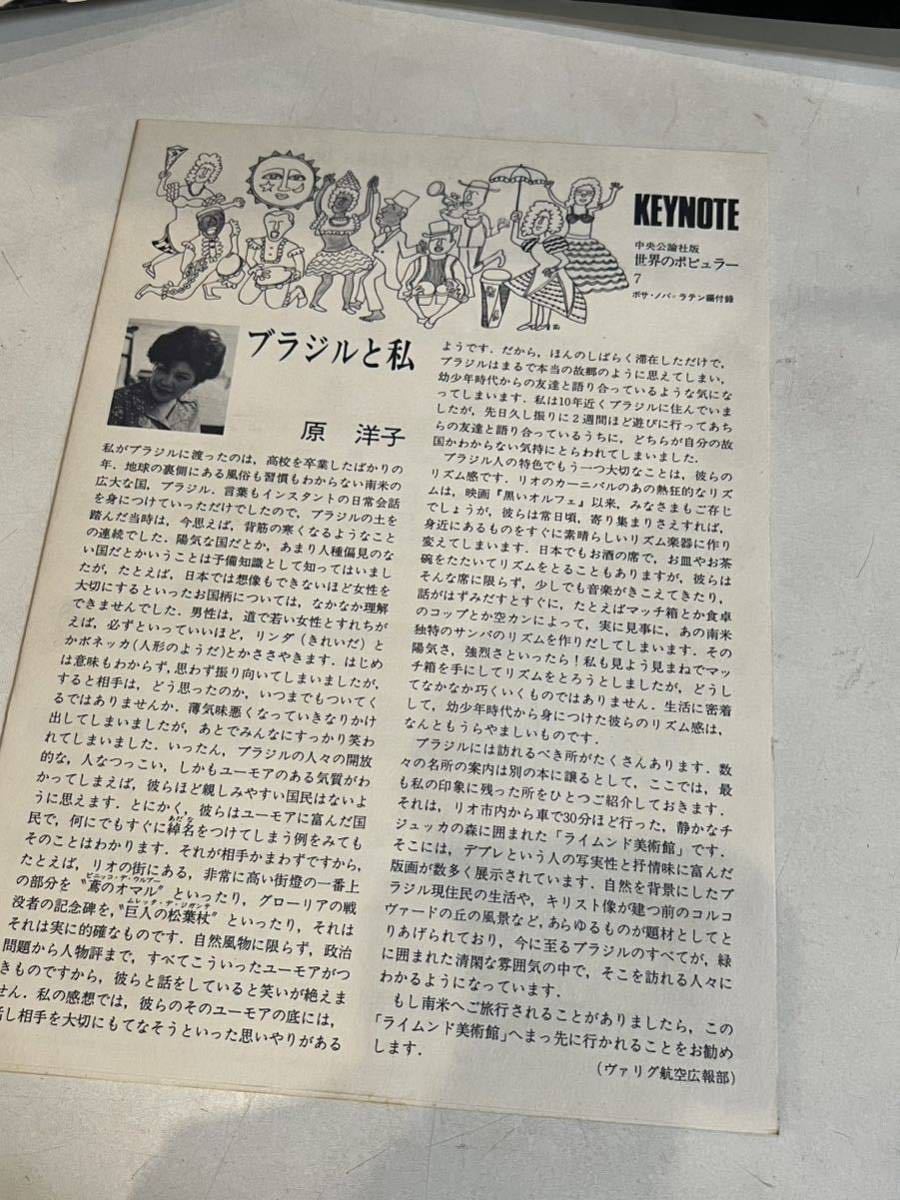 KEYNOTE
中央公論社版
世界のポピュラー
7
ボサ・ノバ=ラテン編付録
ブラジルと私
原 洋子
私がブラジルに渡ったのは，高校を卒業したばかりの
年．地球の裏側にある風俗も習慣もわからない南米の
広大な国，ブラジル．言葉もインスタントの日常会話
を身につけていっただけでしたので，ブラジルの土を
踏んだ当時は，今思えば，背筋の寒くなるようなこと
の連続でした．陽気な国だとか，あまり人種偏見のな
い国だとかいうことは予備知識として知ってはいまし
たが，たとえば，日本では想像もできないほど女性を
大切にするといったお国柄については，なかなか理解
できませんでした．男性は，道で若い女性とすれちが
えば，必ずといっていいほど，リンダ（きれいだ）と
かボネッカ（人形のようだ）とかささやきます．はじめ
は意味もわからず，思わず振り向いてしまいましたが，
すると相手は，どう思ったのか，いつまでもついてく
るではありませんか．薄気味悪くなっていきなりかけ
出してしまいましたが，あとでみんなにすっかり笑わ
れてしまいました．いったん，ブラジルの人々の開放
的な，人なつっこい，しかもユーモアのある気質がわ
かってしまえば，彼らほど親しみやすい国民はないよ
うに思えます．とにかく，彼らはユーモアに富んだ国
民で，何にでもすぐに綽名をつけてしまう例をみても
そのことはわかります．それが相手かまわずですから，
たとえば，リオの街にある，非常に高い街燈の一番上
の部分を〝鳶のオマル〟といったり，グローリアの戦
没者の記念碑を，〝巨人の松葉杖〟といったり，それは
それは実に的確なものです．自然風物に限らず，政治
問題から人物評まで，すべてこういったユーモアがつ
きものですから，彼らと話をしていると笑いが絶えま
せん．私の感想では，彼らのそのユーモアの底には，
話し相手を大切にもてなそうといった思いやりがある
ようです．だから，ほんのしばらく滞在しただけで，
ブラジルはまるで本当の故郷のように思えてしまい，
幼少年時代からの友達と語り合っているような気にな
ってしまいます．私は10年近くブラジルに住んでいま
したが，先日久し振りに2週間ほど遊びに行ってあち
らの友達と語り合っているうちに，どちらが自分の故
国かわからない気持にとらわれてしまいました．
ブラジル人の特色でもう一つ大切なことは，彼らの
リズム感です．リオのカーニバルのあの熱狂的なリズ
ムは，映画『黒いオルフェ』以来，みなさまもご存じ
でしょうが，彼らは常日頃，寄り集まりさえすれば，
身近にあるものをすぐに素晴らしいリズム楽器に作り
変えてしまいます．日本でもお酒の席で，お皿やお茶
碗をたたいてリズムをとることもありますが，彼らは
そんな席に限らず，少しでも音楽がきこえてきたり，
話がはずみだすとすぐに，たとえばマッチ箱とか食卓
のコップとか空カンによって，実に見事に，あの南米
独特のサンバのリズムを作りだしてしまいます．その
陽気さ，強烈さといったら！私も見よう見まねでマッ
チ箱を手にしてリズムをとろうとしましたが，どうし
てなかなか巧くいくものではありません．生活に密着
して，幼少年時代から身につけた彼らのリズム感は，
なんともうらやましいものです．
ブラジルには訪れるべき所がたくさんあります．数
々の名所の案内は別の本に譲るとして，ここでは，最
も私の印象に残った所をひとつご紹介しておきます．
それは，リオ市内から車で30分ほど行った，静かなチ
ジュッカの森に囲まれた「ライムンド美術館」です．
そこには，デブレという人の写実性と抒情味に富んだ
版画が数多く展示されています．自然を背景にしたブ
ラジル現住民の生活や，キリスト像が建つ前のコルコ
ヴァードの丘の風景など，あらゆるものが題材としてと
りあげられており，今に至るブラジルのすべてが，緑
に囲まれた清閑な雰囲気の中で，そこを訪れる人々に
わかるようになっています．
もし南米へご旅行されることがありましたら，この
「ライムンド美術館」へまっ先に行かれることをお勧め
します．
（ヴァリグ航空広報部）